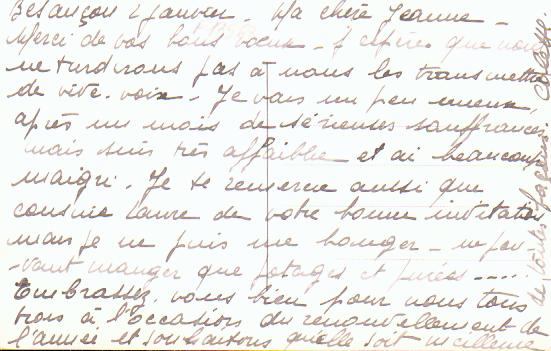 Besançon 2 janvier. Ma chère Jeanne -
Merci de vos bons voeux - J'espère que nous
ne tarderons pas à nous les transmettre
de vive voix - Je vais un peu mieux,
après un mois de sérieuses souffrances
mais suis très affaiblie et ai beaucoup
maigri. Je te remercie aussi que
cousine Laure de votre bonne invitation
mais je ne puis me bouger - ne pou-
-vant manger que potages et purées -....
Embrassez vous bien pour nous tous
trois à l'occasion du renouvellement de
l'année et souhaitons qu'elle soit meilleure
de toutes façons